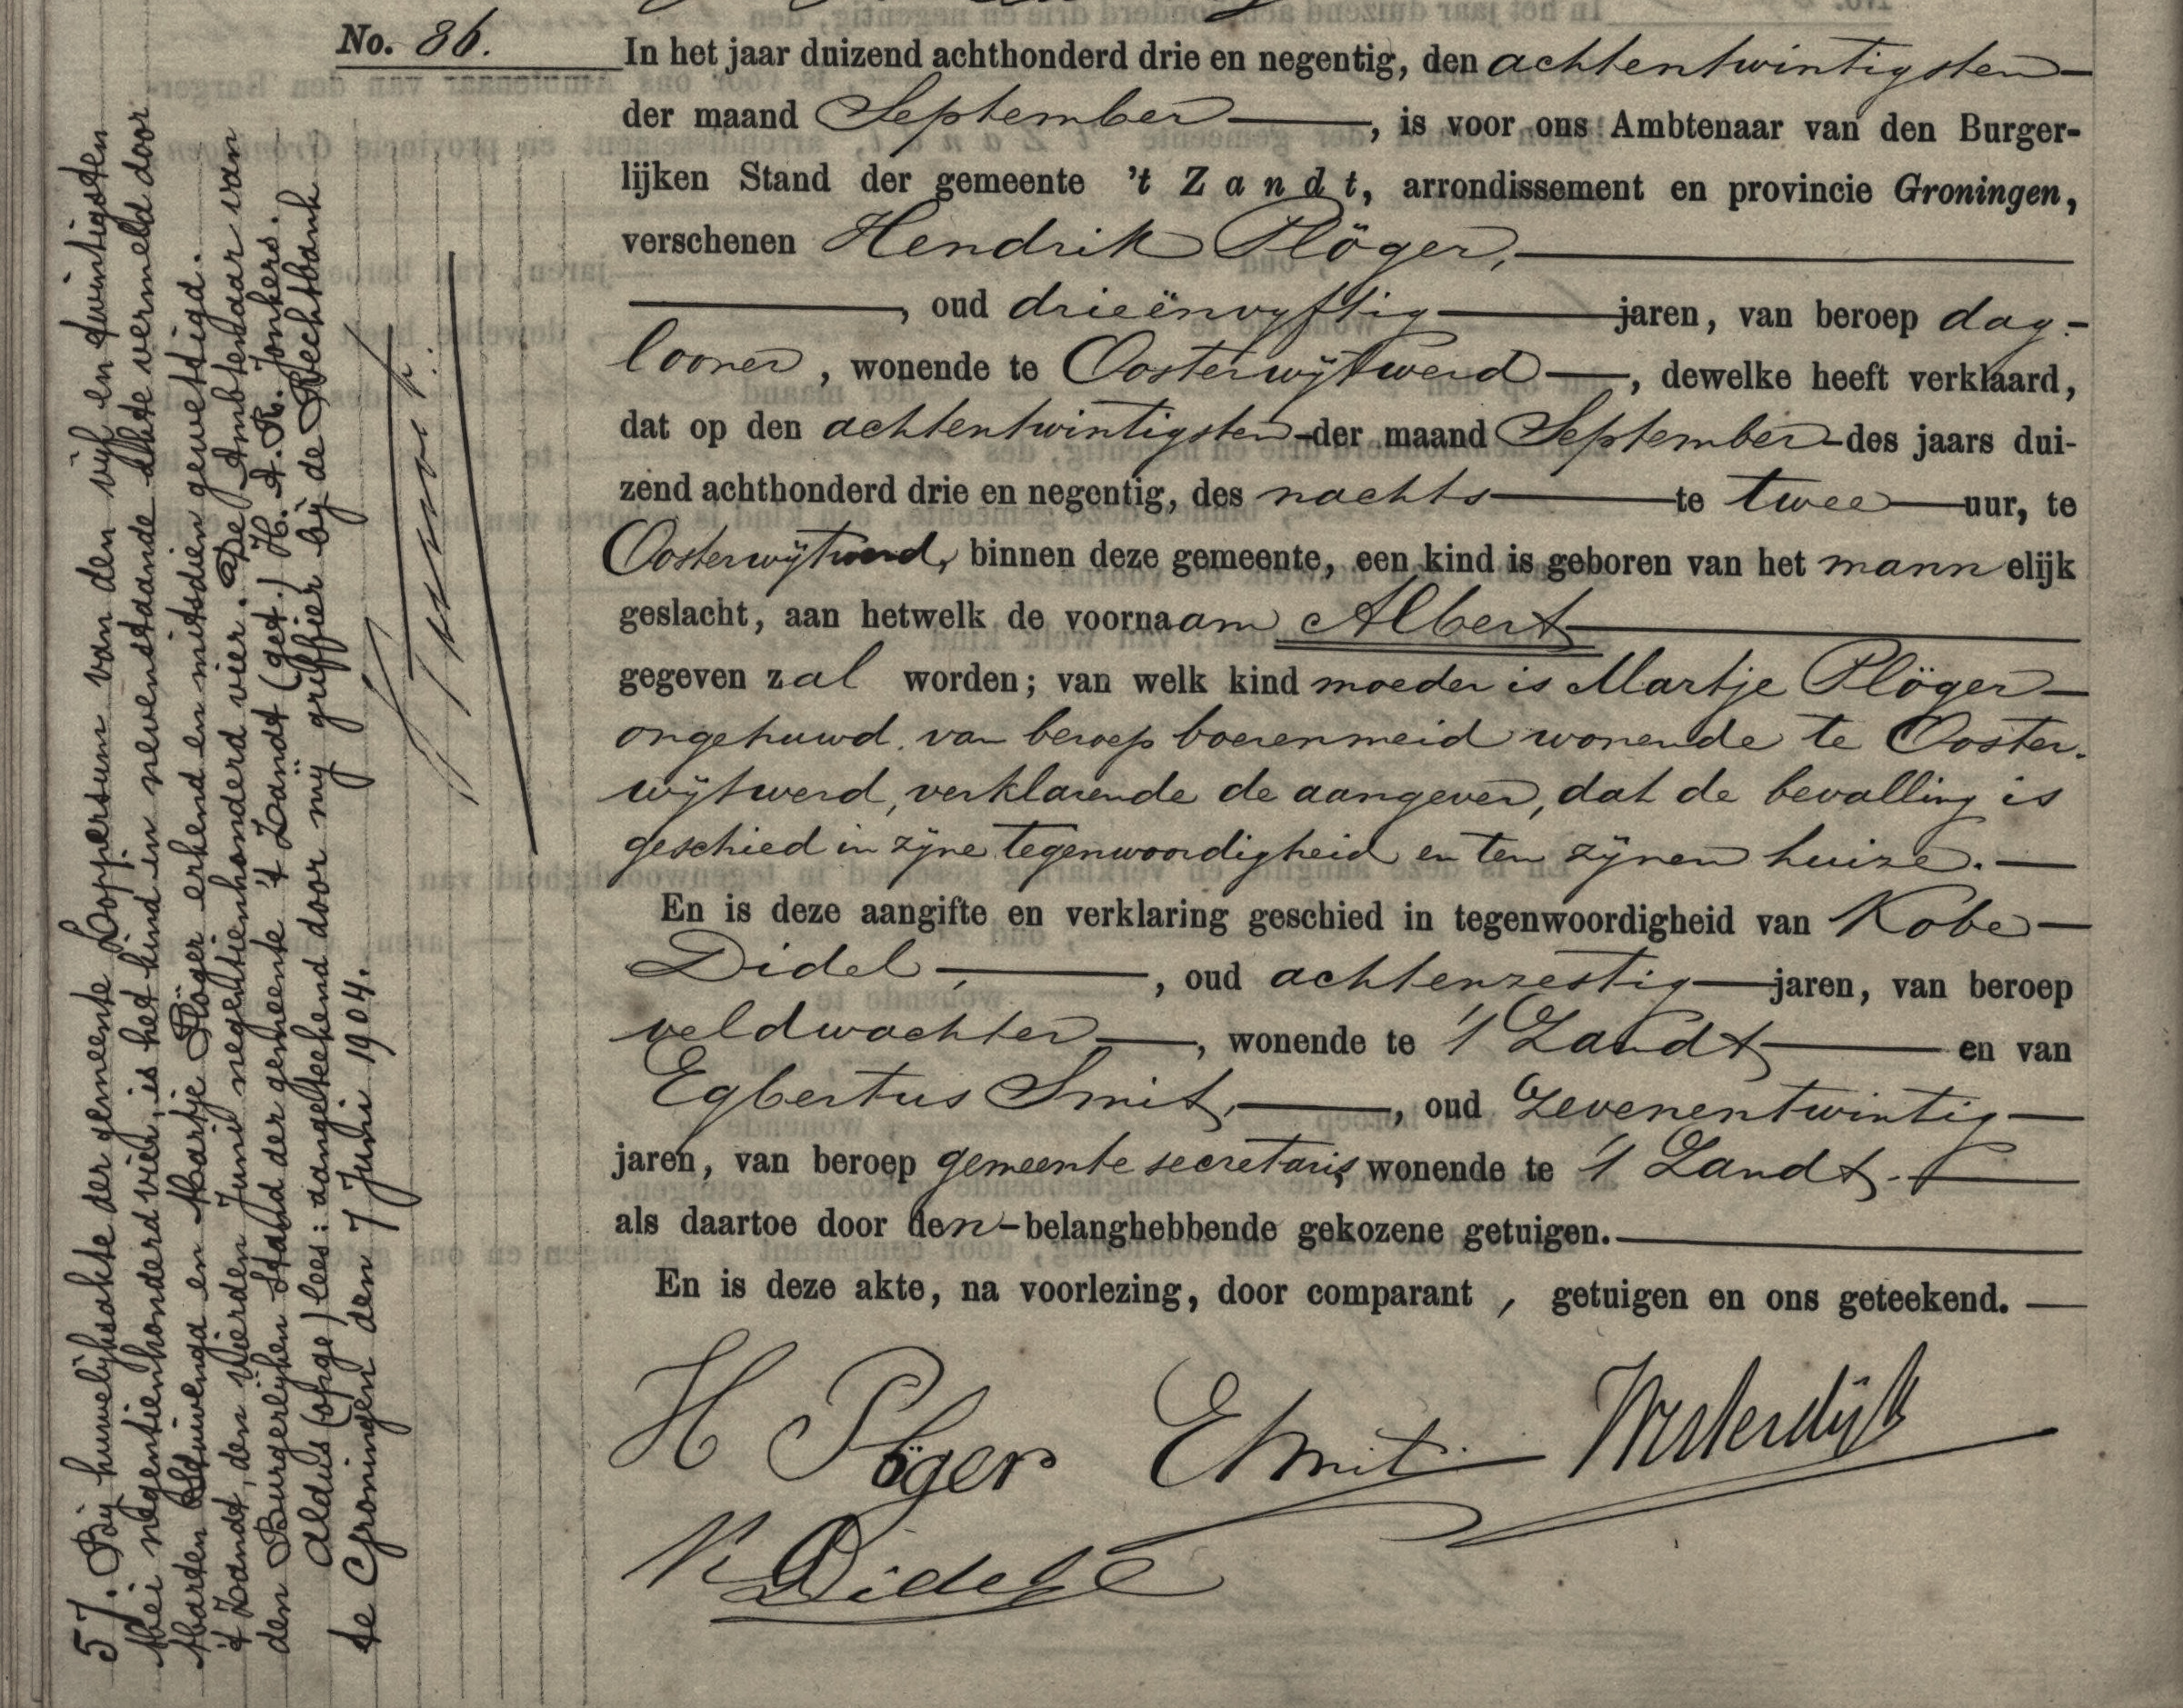 No. 86.
In het jaar duizend achthonderd drie en negentig, den achtentwintigsten
der maand September, is voor ons Ambtenaar van den Burger-
lijken Stand der gemeente 't Zandt, arrondissement en provincie Groningen,
verschenen Hendrik Plöger,
, oud drieënvyftig jaren, van beroep dag-
looner, wonende te Oosterwijtwerd, dewelke heeft verklaard,
dat op den achtentwintigsten der maand September des jaars dui-
zend achthonderd drie en negentig, des nachts te twee uur, te
Oosterwijtwerd, binnen deze gemeente, een kind is geboren van het mannelijk
geslacht, aan hetwelk de voornaam Albert
gegeven zal worden; van welk kind moeder is Martje Plöger
ongehuwd van beroep boerenmeid wonende te Ooster-
wijtwerd, verklarende de aangever, dat de bevalling is
geschied in zijne tegenwoordigheid en ten zijnen huize.
En is deze aangifte en verklaring geschied in tegenwoordigheid van Kobe
Didel, oud achtenzestig jaren, van beroep
veldwachter, wonende te 't Zandt en van
Egbertus Smit, oud zevenentwintig
jaren, van beroep gemeentesecretaris, wonende te 't Zandt.
als daartoe door den belanghebbende gekozene getuigen.
En is deze akte, na voorlezing, door comparant, getuigen en ons geteekend.
H Plöger ESmit Westerdijk
K Didel
57. Bij huwelijksakte der gemeente Loppersum van den vijf en twintigsten
Mei negentienhonderd vier, is het kind in nevenstaande akte vermeld door
Marten Bluwenga en Martje Plöger erkend en mitsdien gewettigd.
't Zandt, den vierden Juni negentienhonderd vier. De Ambtenaar van
den Burgerlijken Stand der gemeente 't Zandt (get.) H. A. R. Jonkers.
Aldus (opge) lees: aangeteekend door mij griffier bij de Rechtbank
te Groningen den 7 Juni 1904.